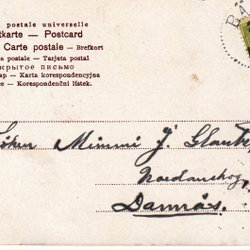 postale universelle
tkarte — Postcard
Carte postale — Brefkort
a postale — Tarjeta postal
крытое письмо
ap — Karta korespondencyjna
ce — Korespondenční lístek.
Mimmi J.
Damnäs.